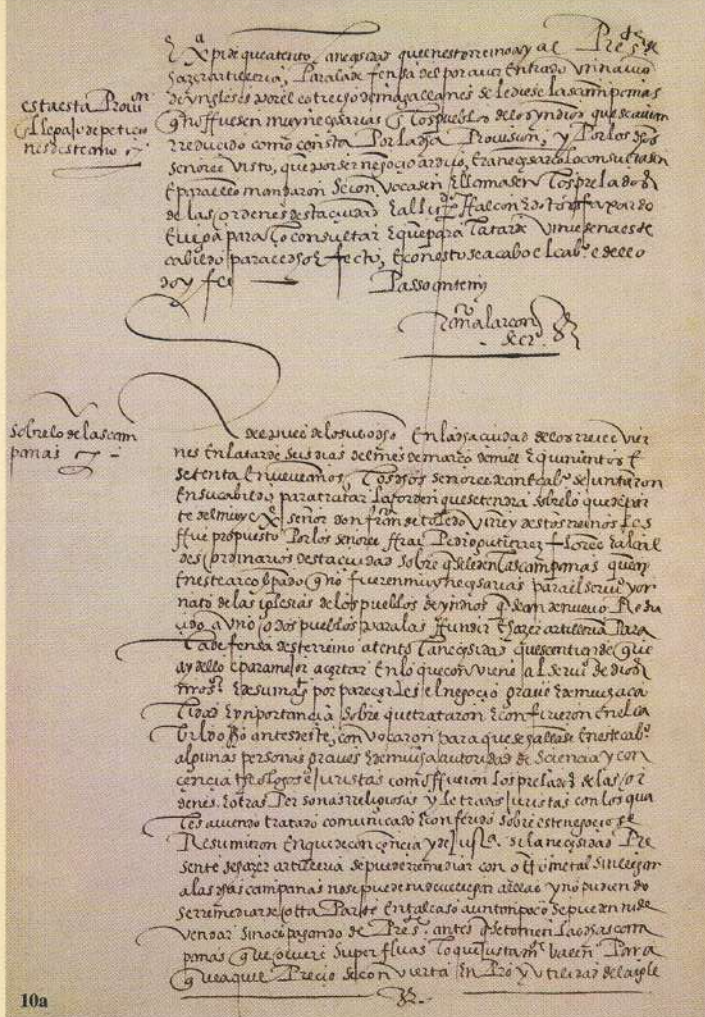 que atento, a necesidad que en este reino ay al Pres.te de
hazer artilleria, Para la defensa del por aver Entrado Un navio
de yngleses por el estrecho de magallanes se le diese las campanas
q no ffuesen muy neçesarias los pueblos de los yndios que se avian
rreducido como consta Por la dha Provision, y Por los dhos
señores visto, que por ser negocio arduo, hera neçesario lo consultasen
E para ello mandaron se convocasen E llamasen Los prelados
de las hordenes desta ciudad
E vija para lo consultar E que para la tarde viniesen a este
cabildo para el dho Efecto, E con esto se acabo el cab.o e dello
doy fee
Passo ante my
alarcon
secr.
esta esta Provi.on
en el legajo de peticio
nes deste año
sobre lo de las cam
panas
despues de lo susodho En la dha ciudad de los rreies vier
nes En la tarde seis dias del mes de março de mill E quinientos E
setenta E nueve años, Los dhos señores dean E cab.o se juntaron
En su cabildo para tratar La horden que se tendra sobre lo que de par
te del muy ex.te señor don fran.co de toledo virrey destos reinos les
ffue propuesto Por los señores
des hordinarios desta ciudad sobre q se le den las campanas que ay
En este arçobpado q no fueren muy neçesarias para el serui.o y or
nato de las iglesias de los pueblos de yndios q se an de nuevo Redu
cido a uno o dos pueblos para las ffundir E hazer artilleria Para
La defensa deste rreino atento la neçesidad que se entiende que
ay dello e para mejor açertar En lo que conviene al serui.o de dios
nro s.r E de su mag.t por pareçerles el negocio grave E de mucha ca
lidad E ynportancia sobre que trataron E confirieron En el ca
bildo dho antes deste, convocaron para que se hallase En este cab.o
algunas personas graves E de mucha autoridad de sciencia y con
çençia theologos E juristas como ffueron los prelados de las hor
denes, E otras Personas rreligiosas y letrados juristas con los qua
les aviendo tratado comunicado E conferido sobre este negocio se
Resumieron En que de conçençia y de jus.a si la neçesidad Pre
sente de hazer artilleria se puede rremediar con otro metal sin llegar
a las dhas campanas no se puede ni deve llegar a ellas y no pudiendo
se rremediar de otra Parte En tal caso aun tanpoco se pueden ni de
ven dar sino es pagando de Pres.te antes q se tomen Las dhas cam
panas que oviere superfluas Lo que justam.te valen Para
que aquel Precio se convierta En Pro y utilidad de la igle
10a